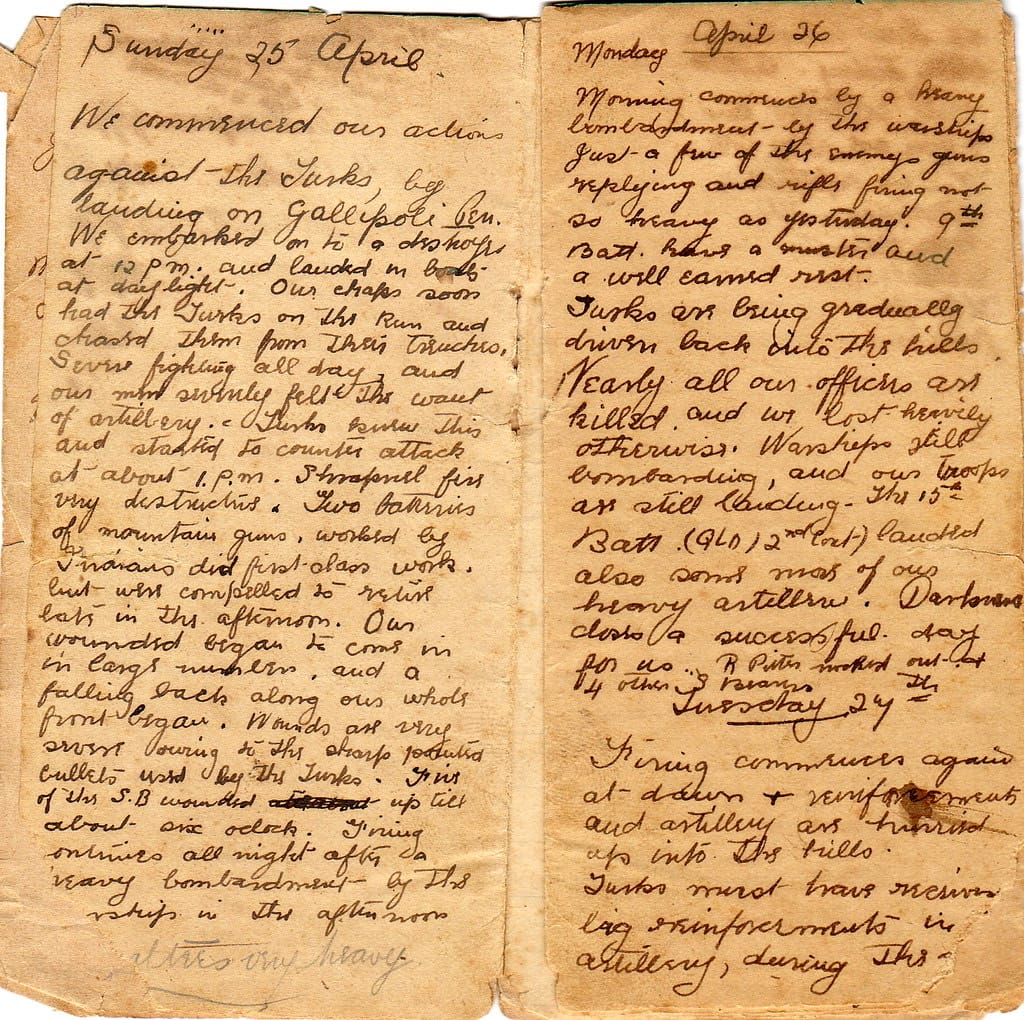 Sunday 25 April.
We commenced our actions
against the Turks, by
landing on Gallipoli Pen.
We embarked on to a destroyer
at 12 p.m. and landed in boats
at daylight. Our chaps soon
had the Turks on the run and
chased them from their trenches.
Severe fighting all day, and
our men severely felt the want
of artillery. Turks knew this
and started to counter attack
at about 1.p.m. Shrapnel fire
very destructive. Two batteries
of mountain guns, worked by
Indians did first-class work.
but were compelled to retire
late in the afternoon. Our
wounded began to come in
in large numbers, and a
falling back along our whole
front began. Wounds are very
severe owing to the sharp pointed
bullets used by the Turks. Five
of the S.B wounded up till
about six oclock. Firing
ontinues all night after a
eavy bombardment by the
rships in the afternoon
very heavy.
Monday April 26
Morning commences by a heavy
bombardment by the warships
Just a few of the enemys guns
replying and rifle firing not
so heavy as yesterday. 9th
Batt. have a muster and
a well earned rest.
Turks are being gradually
driven back into the hills.
Nearly all our officers are
killed. and we lost heavily
otherwise. Warships still
bombarding, and our troops
are still landing. The 15th
Batt. (QLD) 2nd Cont) landed
also some more of our
heavy artillery. Darkness
closes a successful day
for us. R Pitts knocked out +
4 other S Bearers
Tuesday 27th
Firing commences again
at dawn + reinforcements
and artillery are hurried
up into the hills.
Turks must have receive
big reinforcements in
artillery, during the